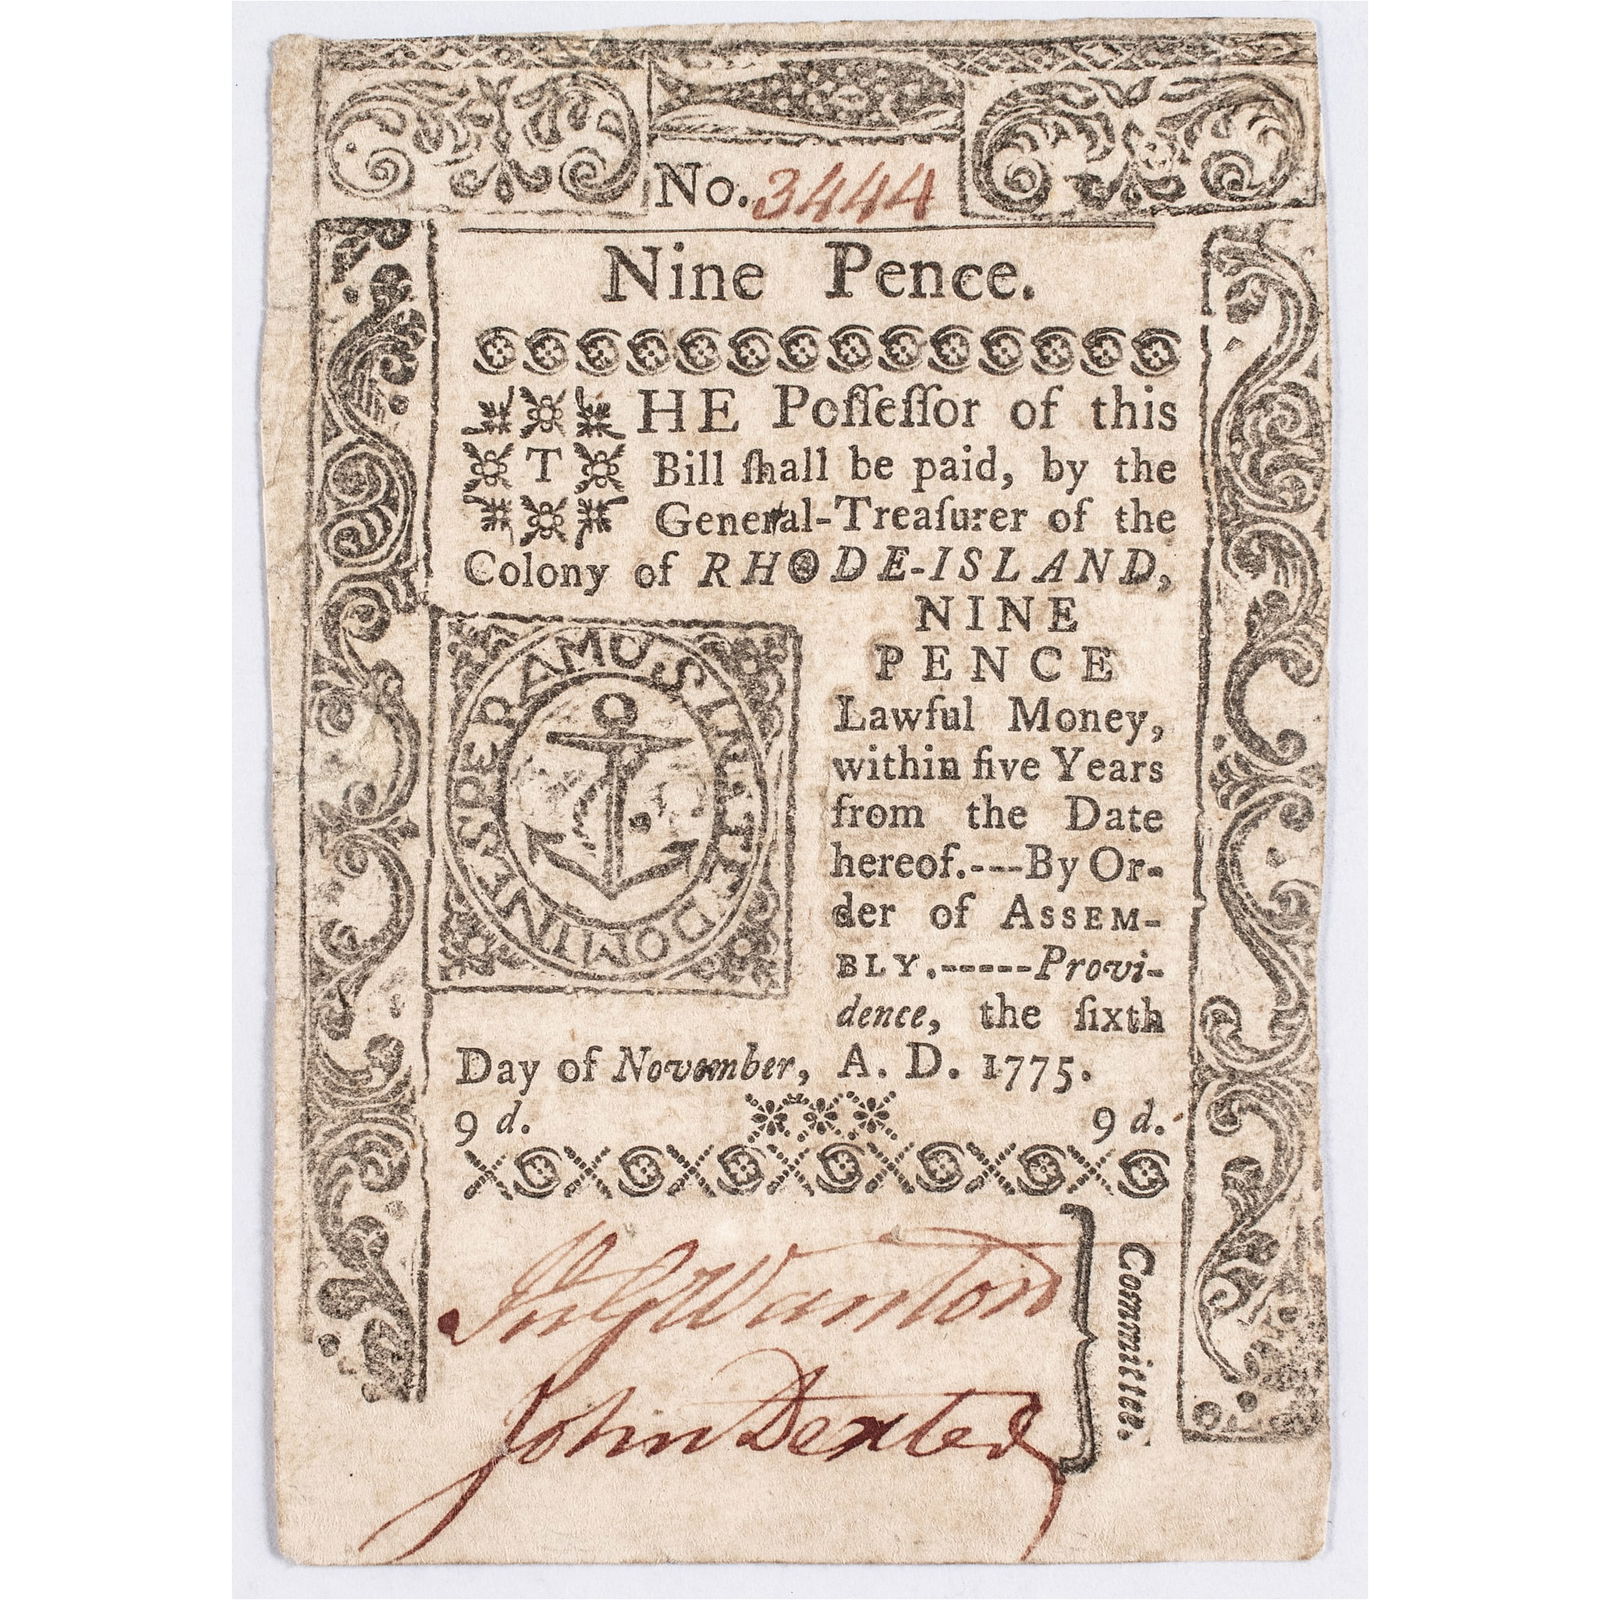 No. 3444
Nine Pence.
THE Poſſeſſor of this
Bill ſhall be paid, by the
General-Treaſurer of the
Colony of RHODE-ISLAND,
NINE
PENCE
Lawful Money,
within five Years
from the Date
hereof.---By Or-
der of ASSEM-
BLY.-----Provi-
dence, the ſixth
Day of November, A. D. 1775.
IN TE DOMINE SPERAMUS
9 d. 9 d.
Wanton
John Dexter
Committee.